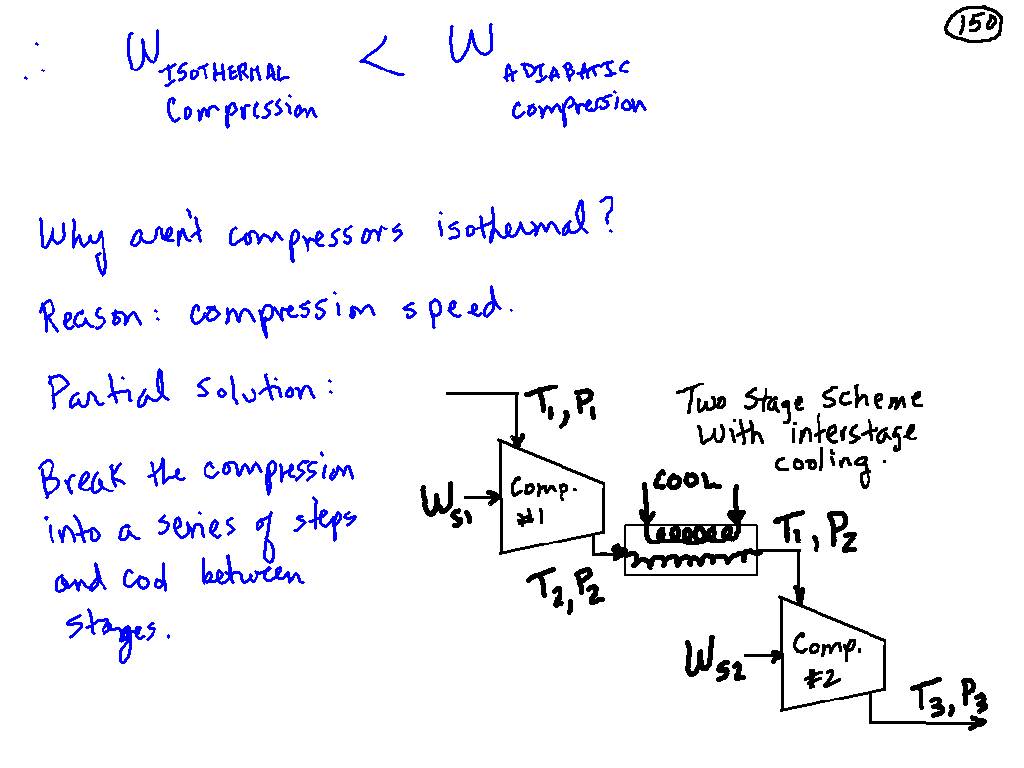 150
∴ W ISOTHERMAL Compression < W ADIABATIC compression
Why aren't compressors isothermal?
Reason: compression speed.
Partial solution:
Break the compression
into a series of steps
and cool between
stages.
T₁, P₁
Two stage scheme
with interstage
cooling.
Comp.
#1
W_S1
COOL
T₁, P₂
T₂, P₂
Comp.
#2
W_S2
T₃, P₃